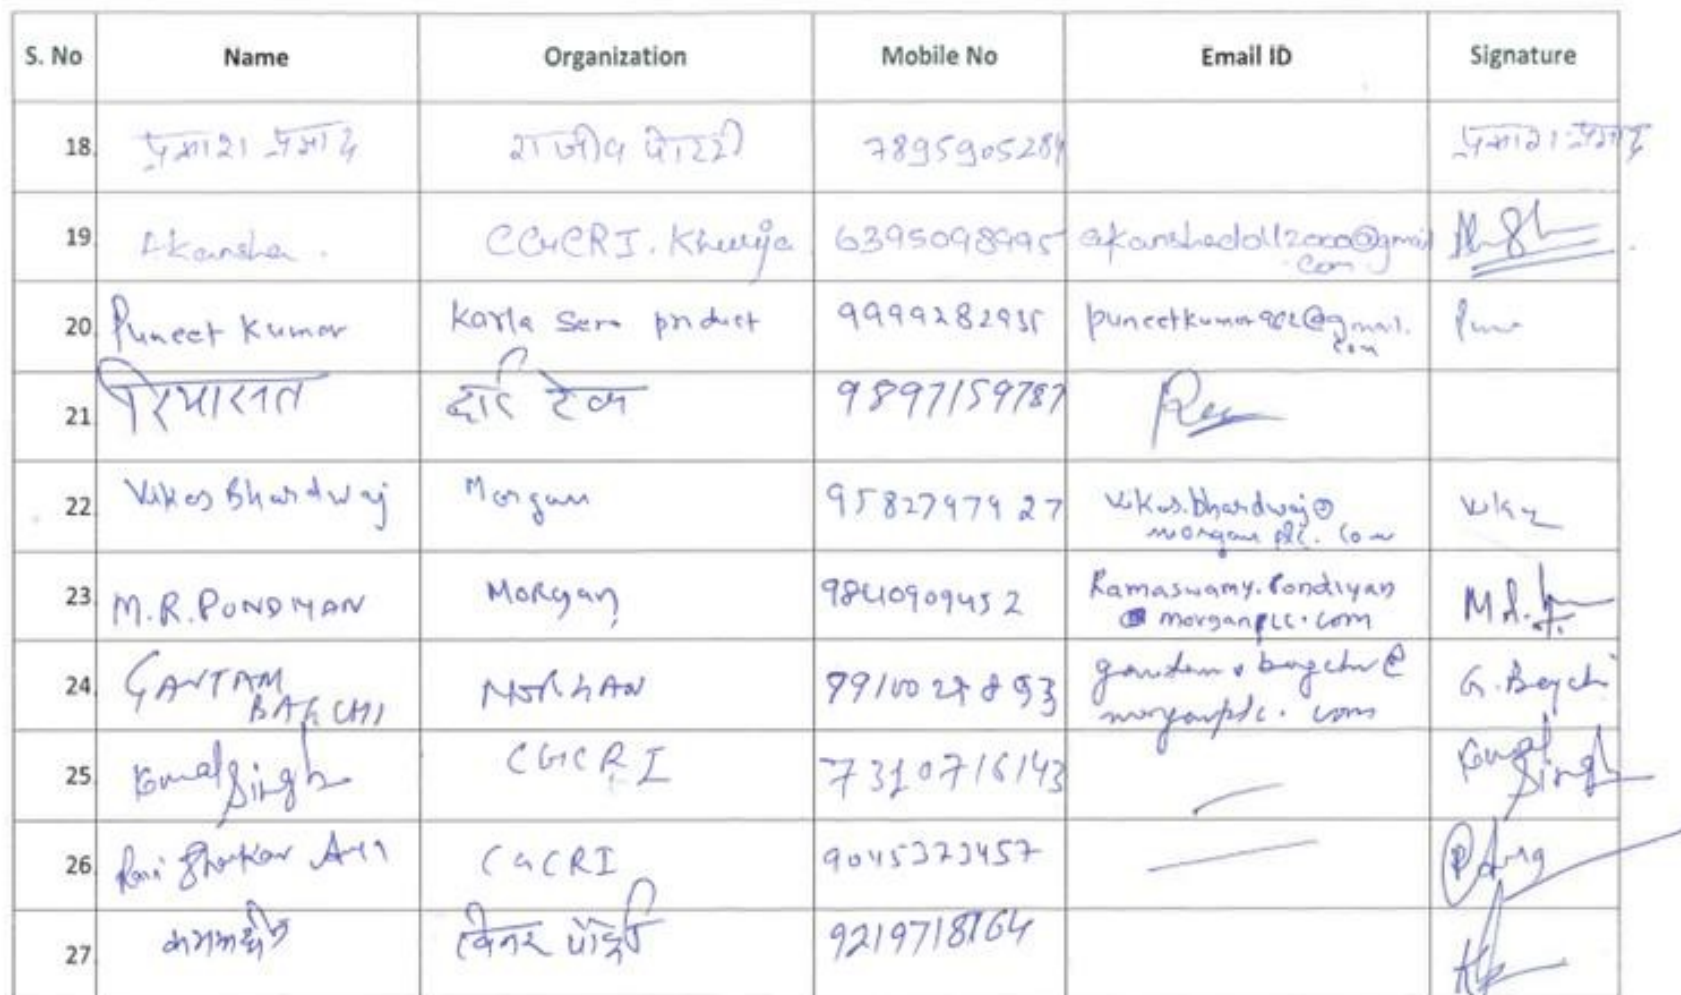 S. No Name Organization Mobile No Email ID Signature
18 राजीव पोटरी 7895905284
19 Akansha. CGCRI. Khurja 6395098995 akanshadoll2000@gmail
.com
20 Puneet Kumar Karla Sera product 9999282935 puneetkumar902@gmail.
com
21 रियासत हाई टेक 9897159787
22 Vikas Bhardwaj Morgan 9582797927 vikas.bhardwaj@
morganplc.com
23 M.R.PONDIYAN Morgan 9840909452 Ramaswamy.Pondiyan
@morganplc.com
24 GAUTAM MORGAN 9910027893 gautam.bagchi@ G.Bagchi
BAGCHI morganplc.com
25 Komal Singh CGCRI 7310716143 Komal Singh
26 Ravi Shankar CGCRI 9045323457
27 विनर पॉटरी 9219718164